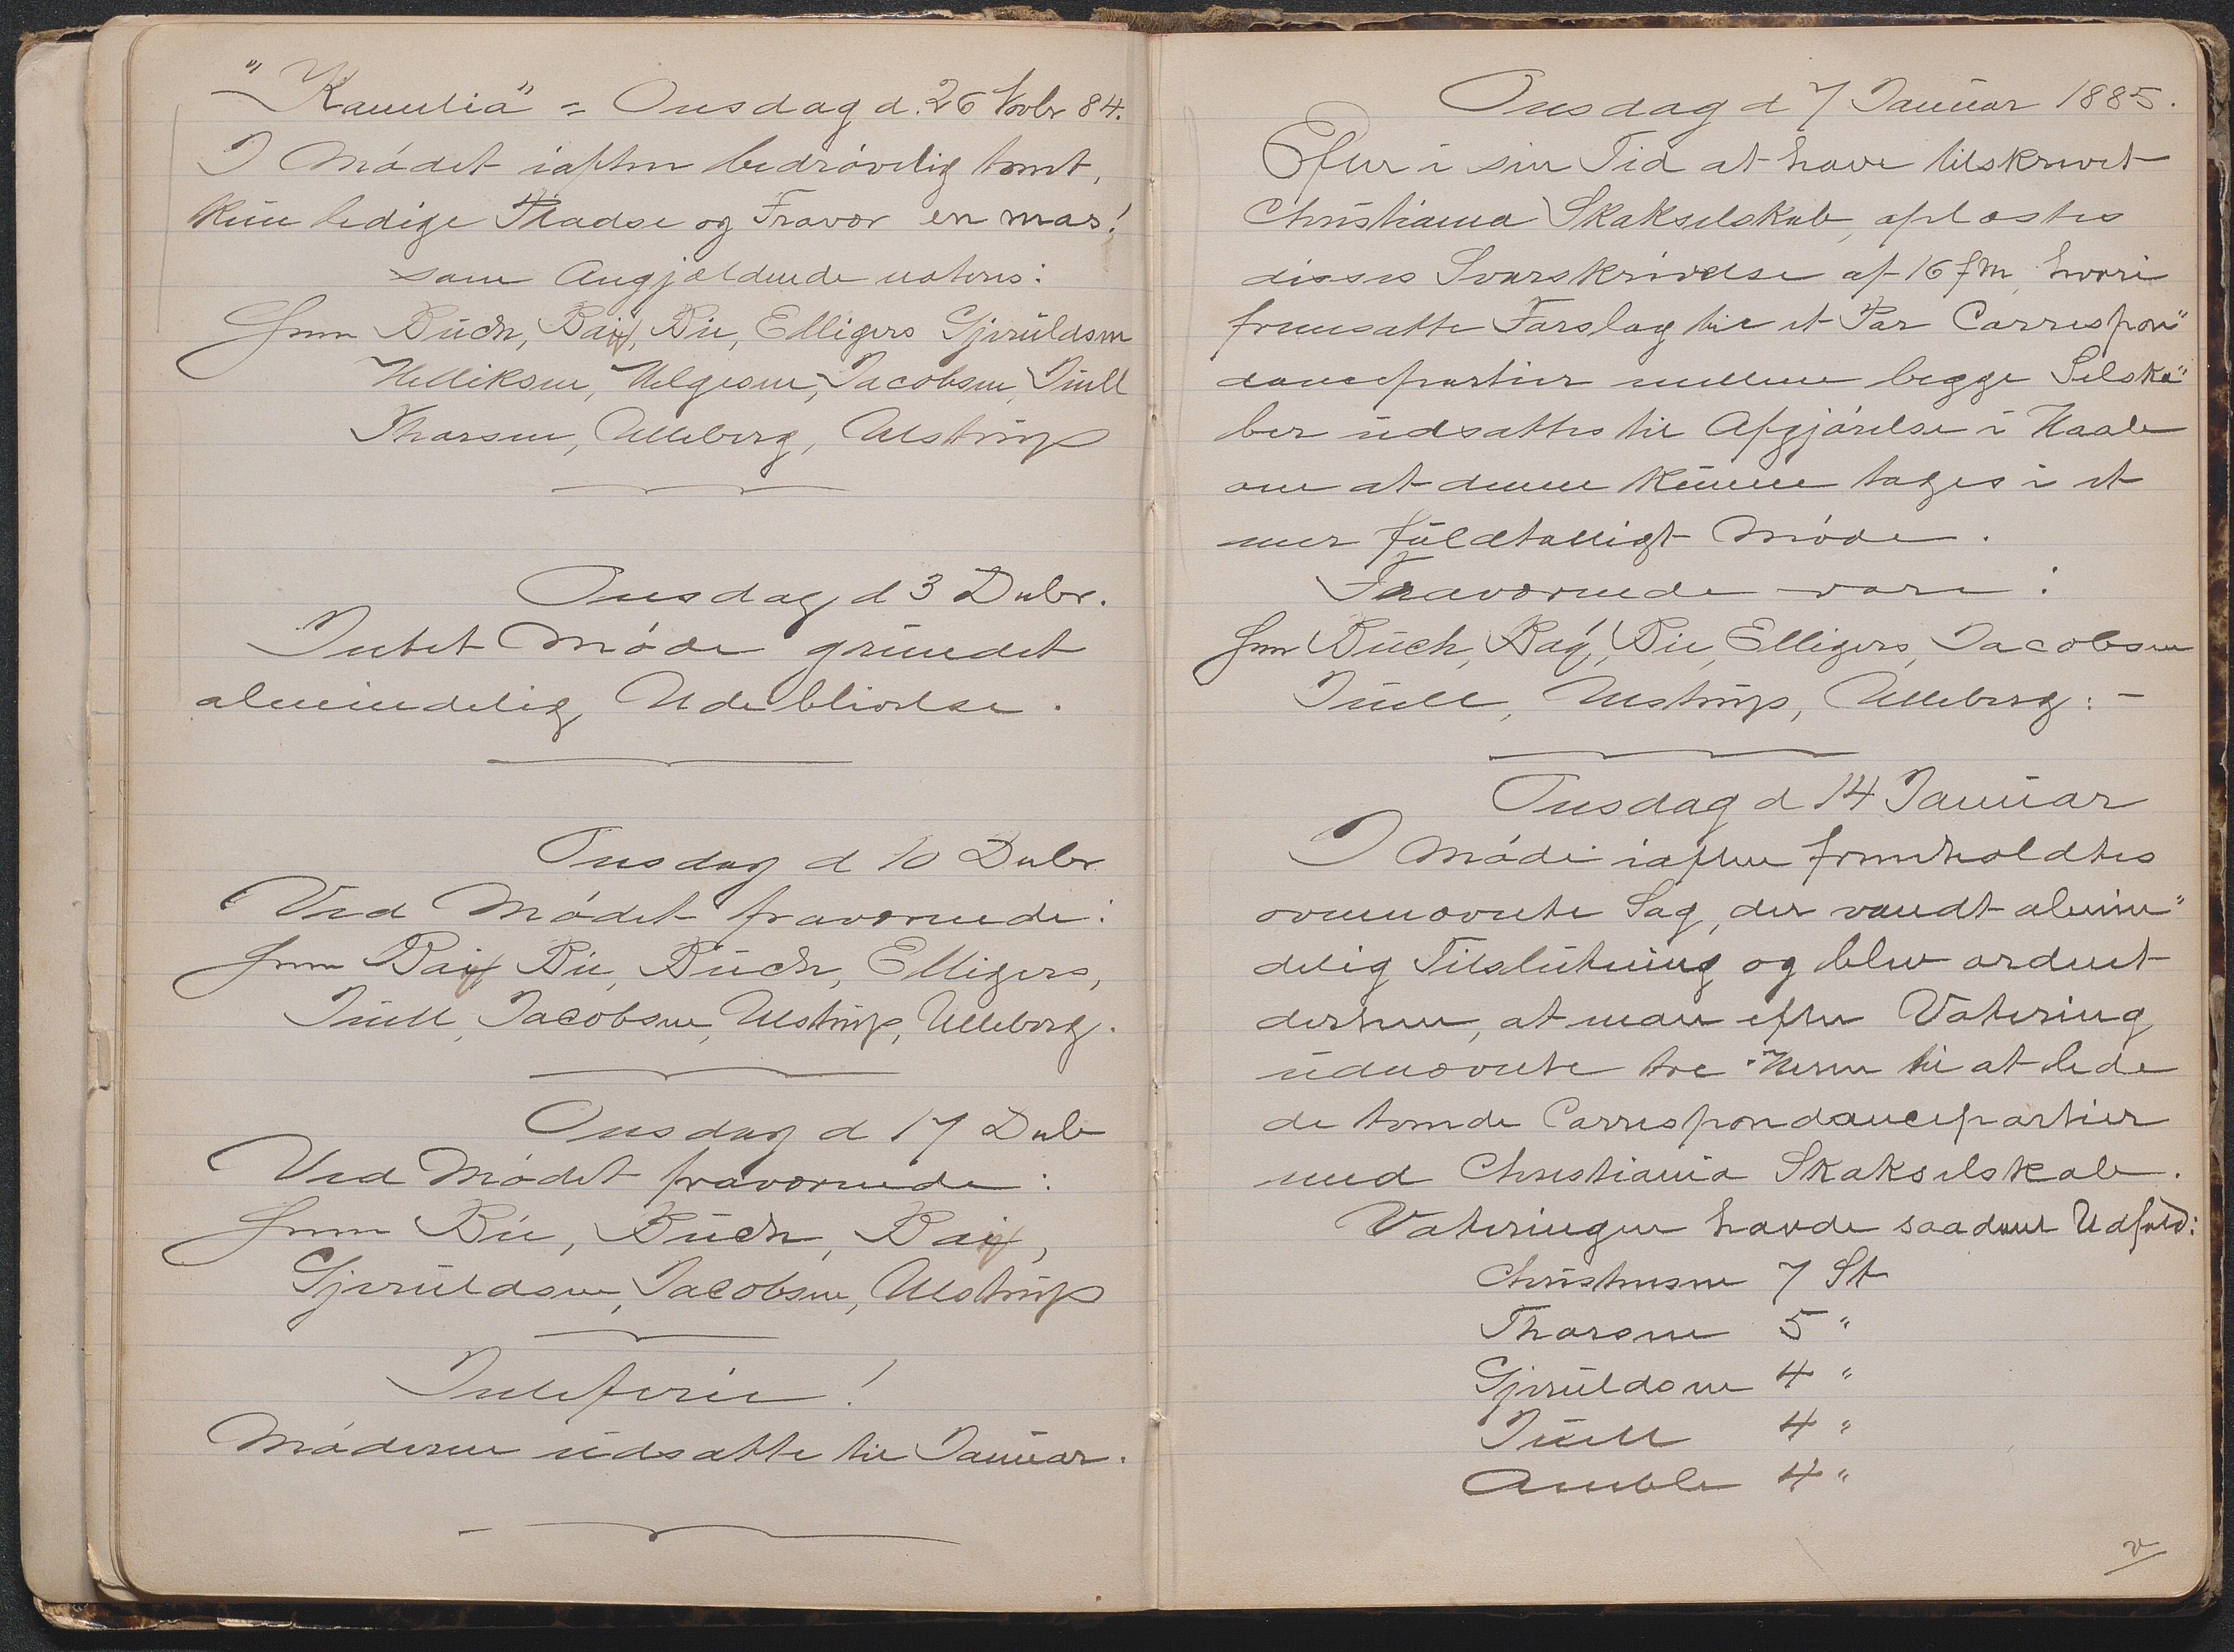 "Kamilia" = Onsdag d. 26 Novbr 84.
I Mødet iaften bedrøvelig tomt,
kun ledige Pladse og Fravær en mas!
som Angjældende noteres:
Hrrn Buch, Baij, Bie, Elligers Gjeruldsen
Helliksen, Helgesen, Jacobsen, Juell
Thorsen, Ulleberg, Ulstrup
Onsdag d 3 Decbr.
Intet Møde grundet
almindelig Udeblivelse.
Onsdag d 10 Decbr
Ved Mødet fraværende:
Hrrn Baij Bie, Buch, Elligers,
Juell, Jacobsen, Ulstrup, Ulleberg.
Onsdag d 17 Decb
Ved Mødet fraværende:
Hrrn Bie, Buch, Baij,
Gjeruldsen, Jacobsen, Ulstrup
Juleferie!
Møderne udsatte til Januar.
Onsdag d 7 Januar 1885.
Efter i sin Tid at have tilskrevet
Christiania Skakselskab, oplæstes
disses Svarskrivelse af 16 f M, hvori
fremsatte Forslag til et Par Correspon"
dancepartier mellem begge Selska"
ber udsattes til Afgjørelse i Haab
om at denne kunne tages i et
mer fuldtalligt Møde.
Fraværende vare:
Hrrn Buch, Baij, Bie, Elligers, Jacobsen
Juell, Ulstrup, Ulleberg: -
Onsdag d 14 Januar
I Møde iaften fremholdtes
ovennævnte Sag, der vandt almin"
delig Tilslutning og blev ordnet
derhen, at man efter Votering
udnævnte tre Herrer til at lede
de tvende Correspondancepartier
med Christiania Skakselskab.
Voteringen havde saadant Udfald:
Christensen 7 St
Thorsen 5 "
Gjeruldsen 4 "
Juell 4 "
Amble 4 "